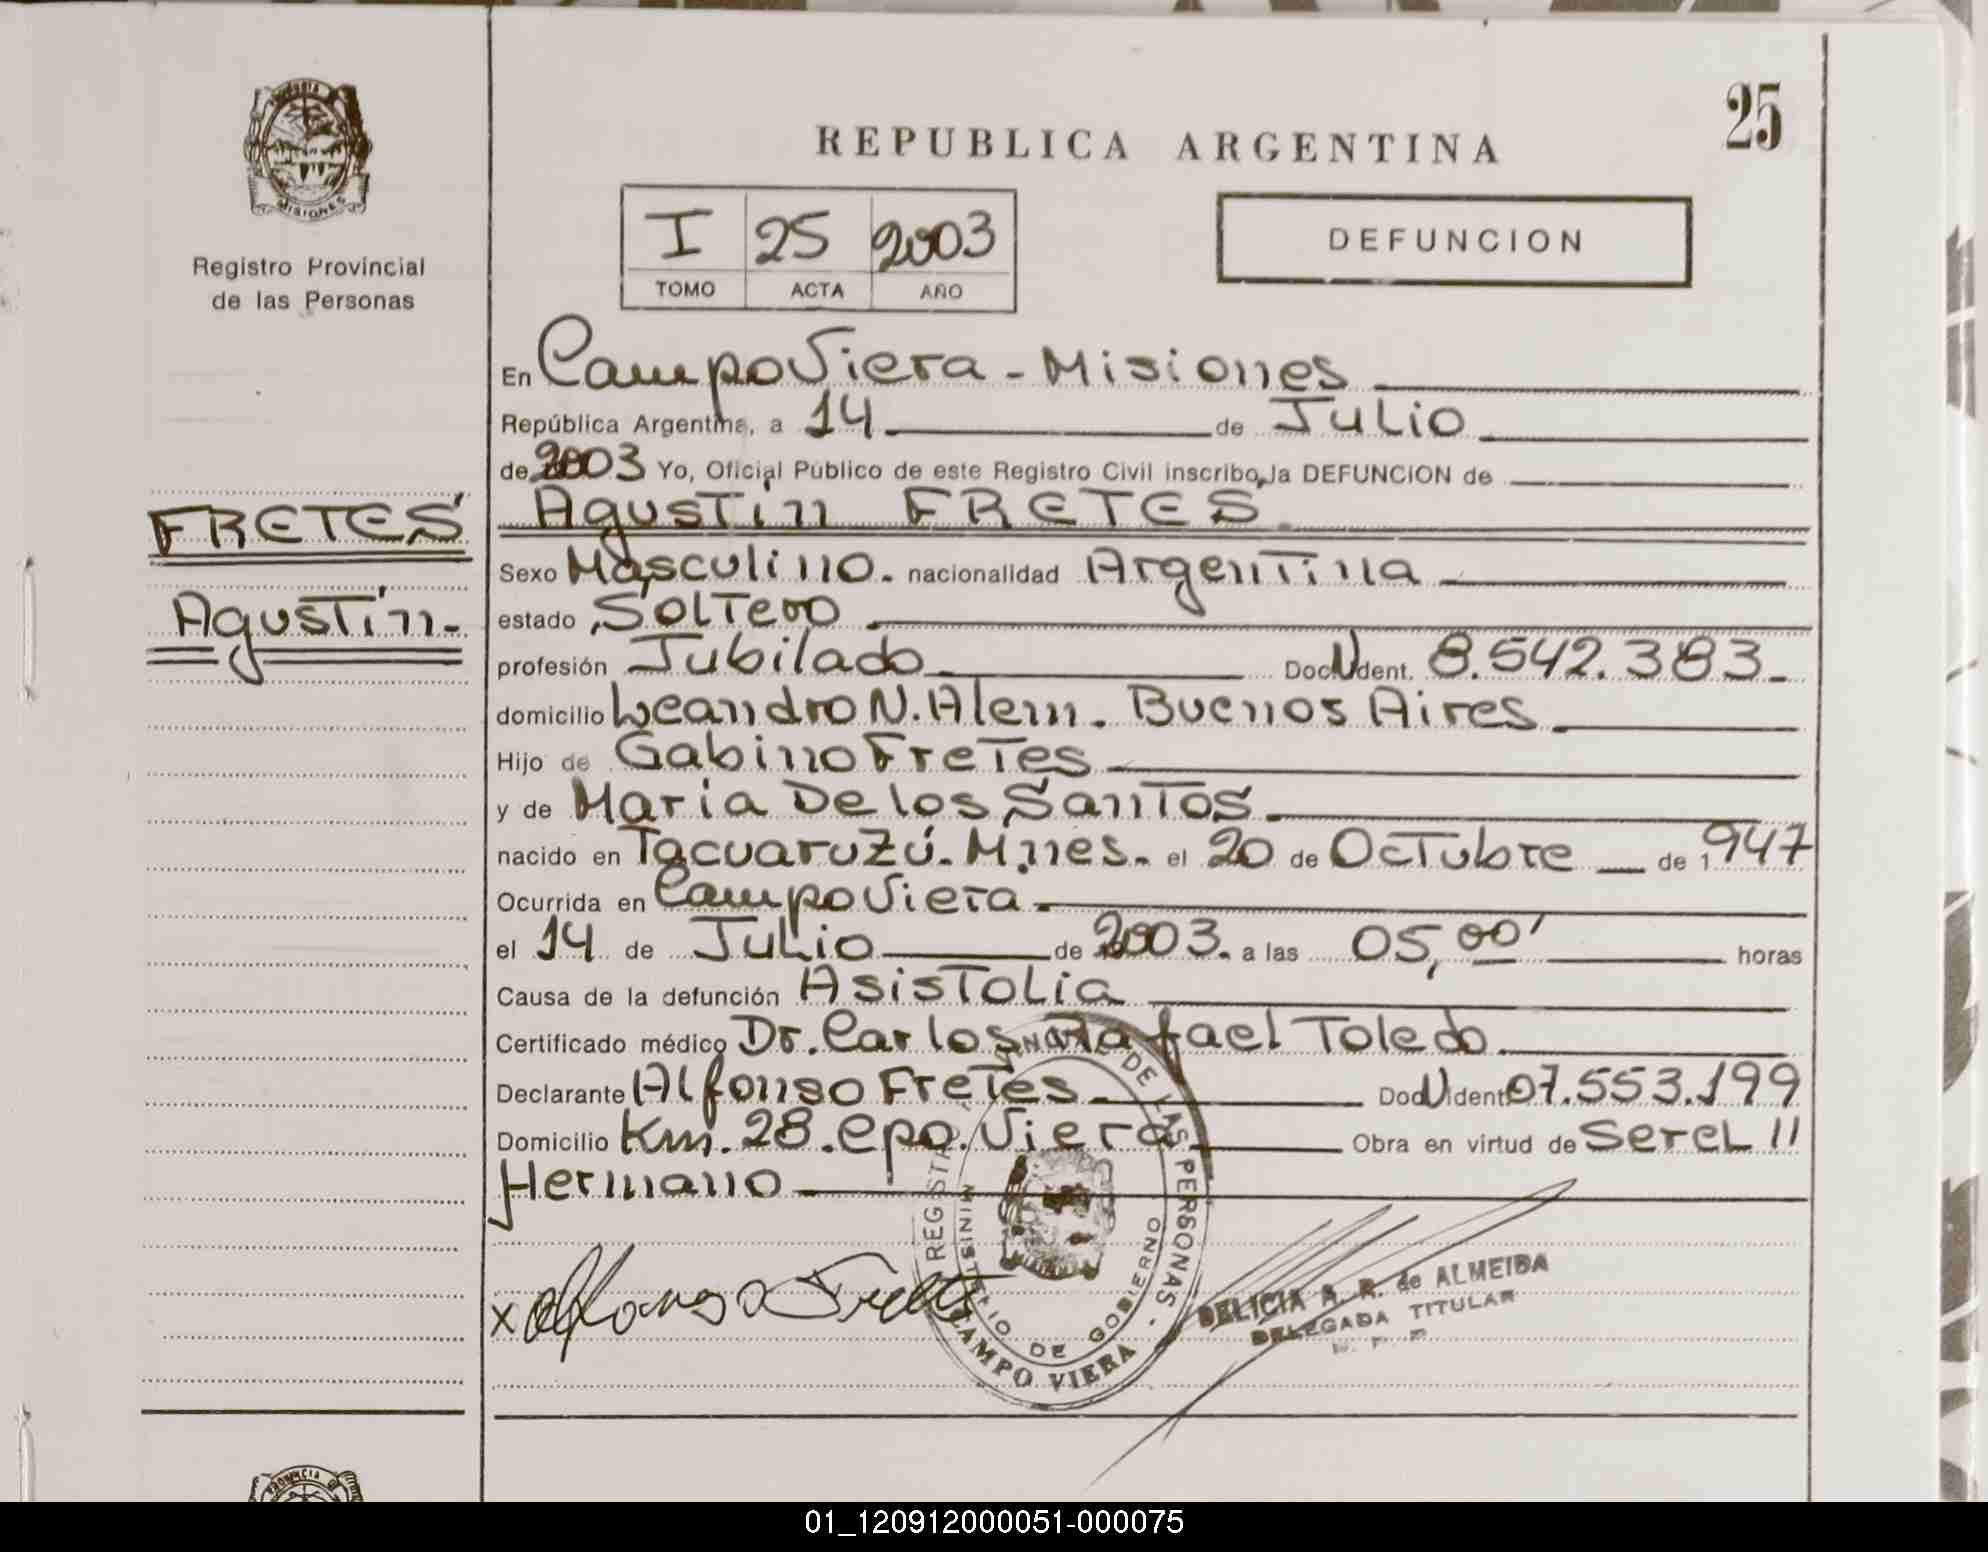 PROVINCIA
MISIONES
Registro Provincial
de las Personas
25
REPUBLICA ARGENTINA
I 25 2003
TOMO ACTA AÑO
DEFUNCION
En Campo Viera - Misiones
República Argentina, a 14 de Julio
de 2003 Yo, Oficial Público de este Registro Civil inscribo la DEFUNCION de
FRETES
Agustín FRETES
Sexo Masculino. nacionalidad Argentina
Agustín.-
estado Soltero
profesión Jubilado Doc. U Ident. 8.542.383.-
domicilio Leandro N. Alem. Buenos Aires
Hijo de Gabino Fretes
y de Maria De los Santos.
nacido en Tacuaruzú. Mnes. el 20 de Octubre de 1947
Ocurrida en Campo Viera.
el 14 de Julio de 2003. a las 05,00' horas
Causa de la defunción Asistolia
Certificado médico Dr. Carlos Rafael Toledo.
Declarante Alfonso Fretes. Doc. U Ident. 07.553.199
Domicilio Km. 28. Cpo. Viera Obra en virtud de Ser el //
Hermano
x Alfonso Fretes
DE LAS PERSONAS.
MINISTERIO DE GOBIERNO
CAMPO VIERA
DELICIA A. R. de ALMEIDA
DELEGADA TITULAR
PROVINCIA
01_120912000051-000075